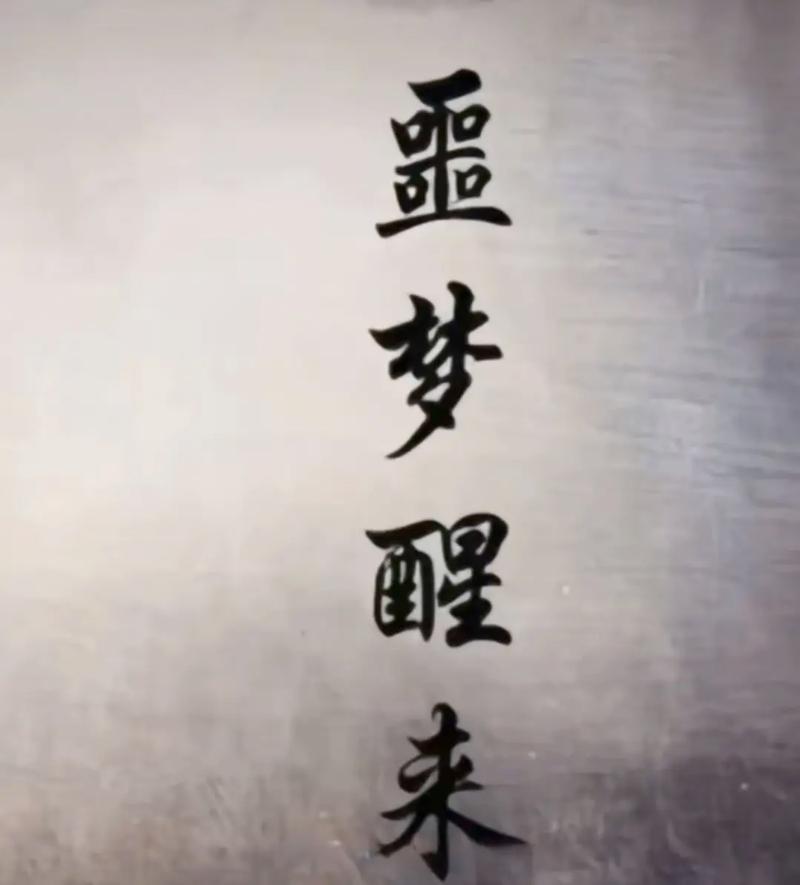 噩梦醒来